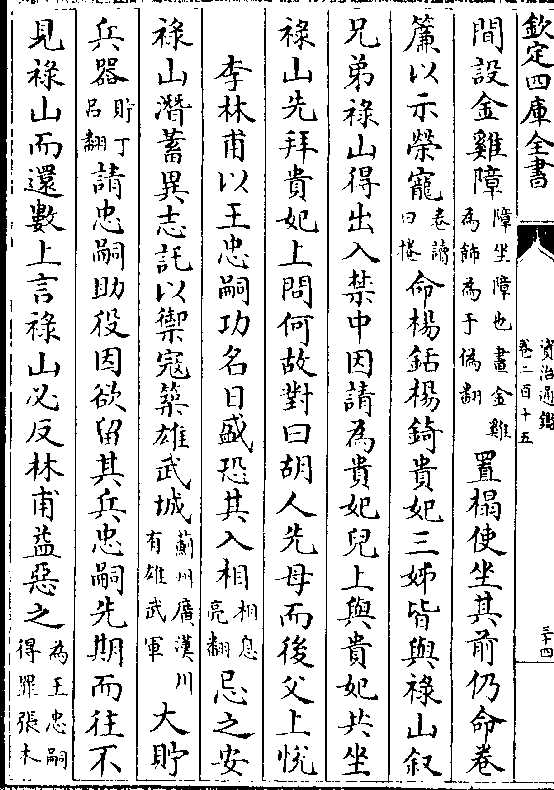 欽定四庫全書
資治通鑑
卷二百十五
三十四
間設金雞障障坐障也畫金雞為飾為于偽翻置榻使坐其前仍命卷
簾以示榮寵卷讀曰捲命楊銛楊錡貴妃三姊皆與祿山叙
兄弟祿山得出入禁中因請為貴妃兒上與貴妃共坐
祿山先拜貴妃上問何故對曰胡人先母而後父上悅
李林甫以王忠嗣功名日盛恐其入相相息亮翻忌之安
祿山潛蓄異志託以禦寇築雄武城薊州廣漢川有雄武軍大貯
兵器貯丁呂翻請忠嗣助役因欲留其兵忠嗣先期而往不
見祿山而還數上言祿山必反林甫益惡之為王忠嗣得罪張本